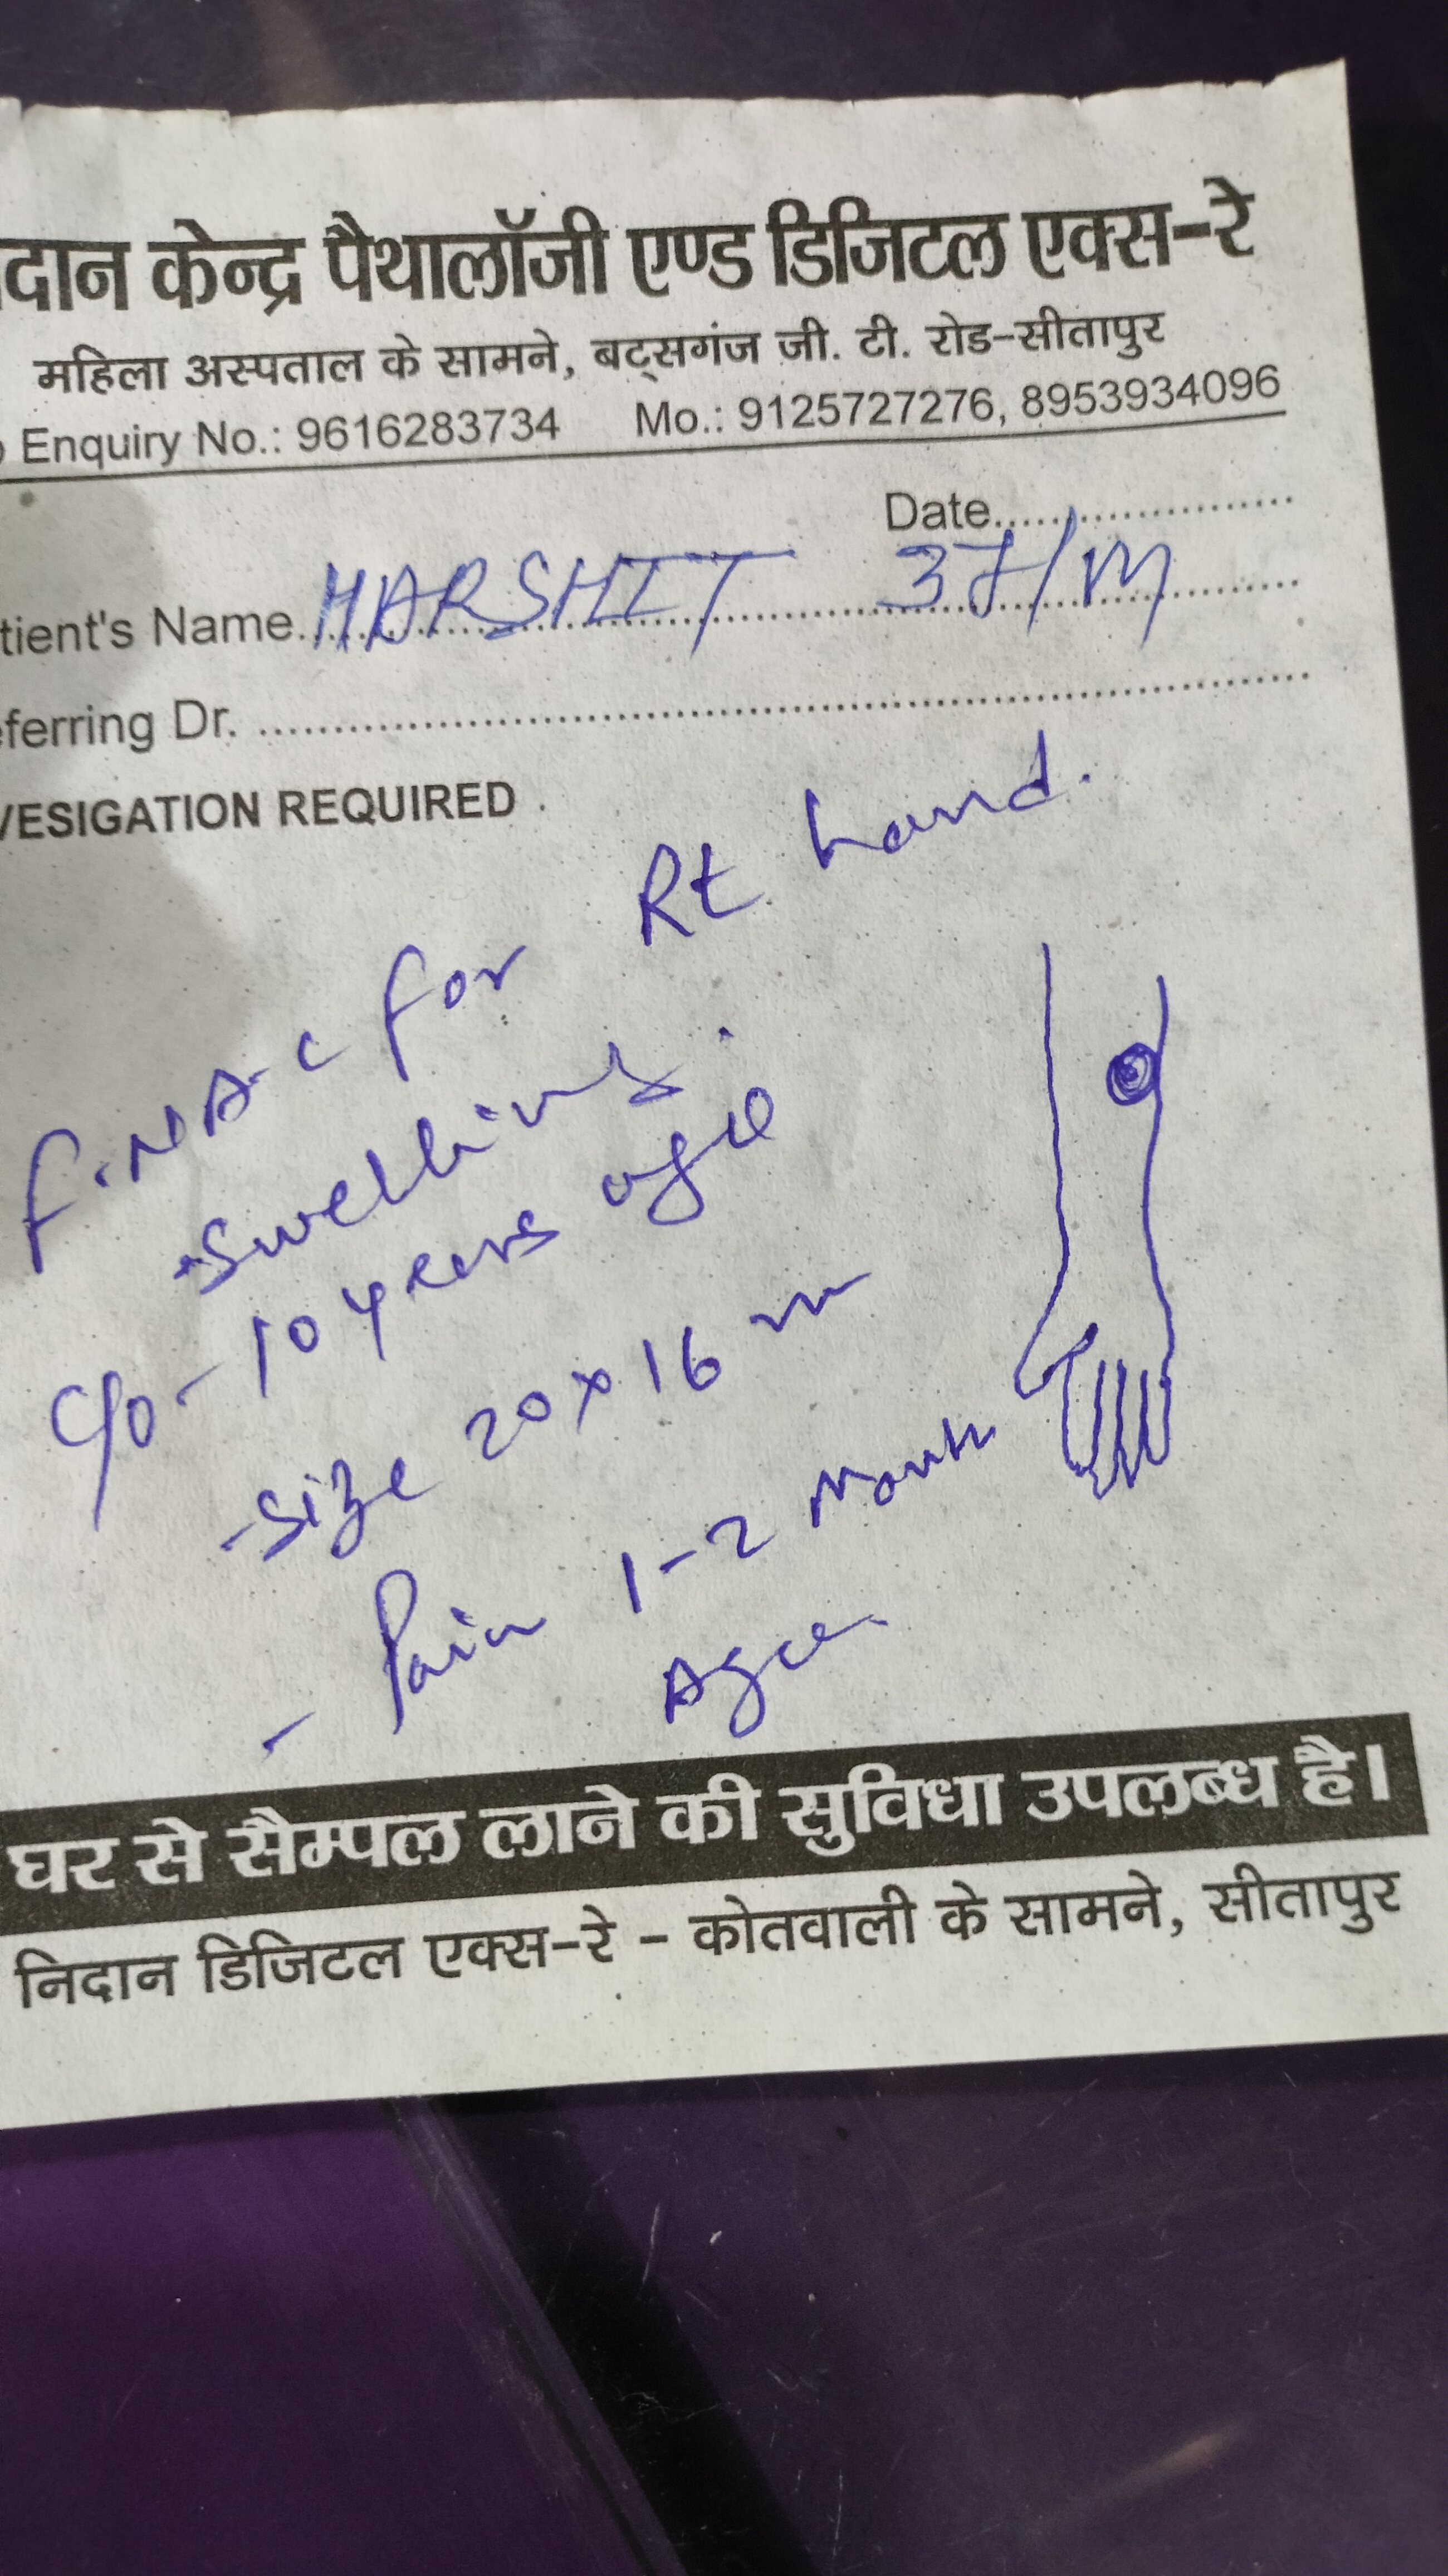 दान केन्द्र पैथालॉजी एण्ड डिजिटल एक्स-रे
महिला अस्पताल के सामने, बट्सगंज जी. टी. रोड-सीतापुर
Enquiry No.: 9616283734 Mo.: 9125727276, 8953934096
Date....................
tient's Name. HARSHIT 37/M
ferring Dr. ....................
VESIGATION REQUIRED .
F.N.A.C for Rt hand.
swelling.
C/o - 10 years
- Size 20 x 16
- Pain 1-2 Month
घर से सैम्पल लाने की सुविधा उपलब्ध है।
निदान डिजिटल एक्स-रे - कोतवाली के सामने, सीतापुर